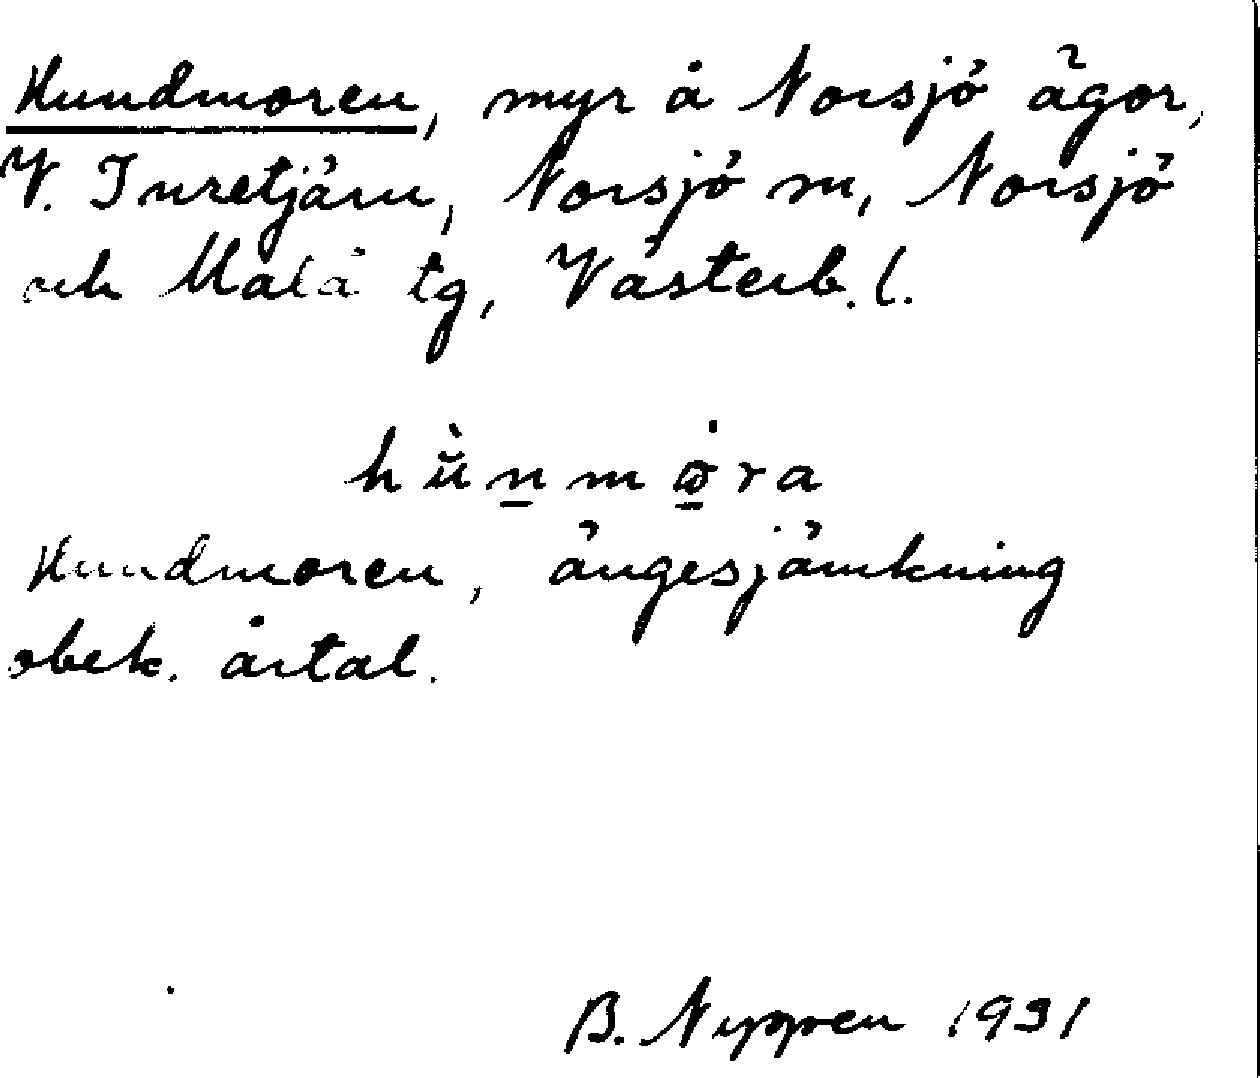 Hundmoren, myr å Norsjö ägor,
V. Inretjärn, Norsjö sn, Norsjö
och Malå tg, Västerb. l.
hùn̲mø̲ra
Hundmoren, ängesjämkning
obek. årtal.
B. Nygren 1931